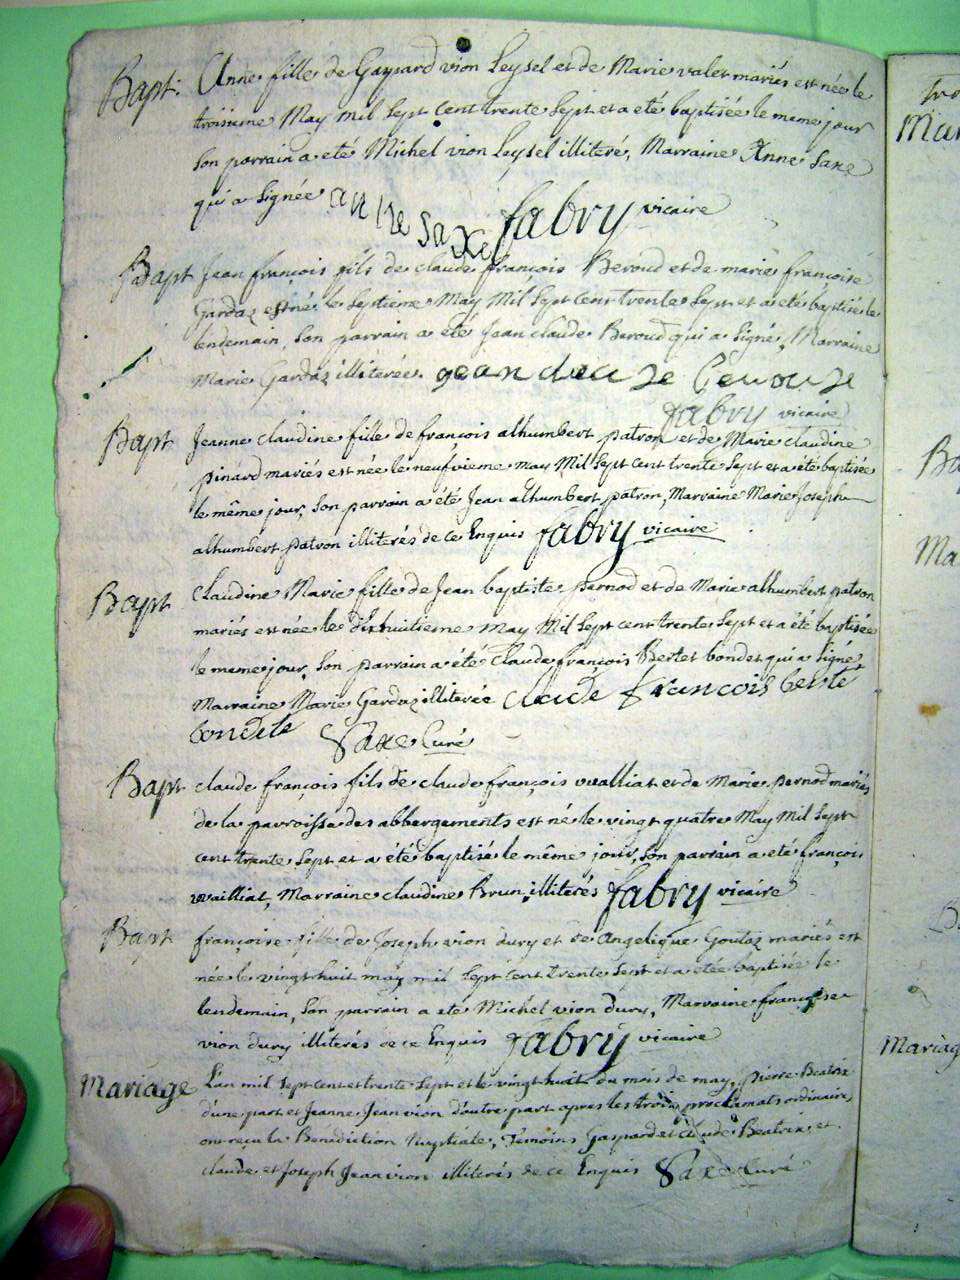 Bapt. Anne fille de Gaspard vion Leysel et de Marie valet mariés est née le
troisieme May mil sept cent trente sept et a eté baptisée le meme jour
son parrain a eté Michel vion Leysel illiteré, Marraine Anne Saxe
qui a signée anne saxe fabry vicaire
Bapt Jean françois fils de claude françois Beroud et de marie françoise
Gardaz est né le septieme May Mil sept cent trente sept et a été baptisé le
lendemain, son parrain a été Jean claude Beroud qui a signé, Marraine
Marie Gardaz illiterée.
fabry vicaire
Bapt Jeanne claudine fille de françois alhumbert patron et de Marie claudine
pinard mariés est née le neufvieme may Mil sept cent trente sept et a été baptisée
le même jour, son parrain a été Jean alhumbert patron, Marraine Marie Joseph
alhumbert patron illiterés de ce Enquis fabry vicaire
Bapt Claudine Marie fille de Jean baptiste pernod et de Marie alhumbert patron
mariés est née le dixhuitieme may Mil sept cent trente sept et a été baptisée
le meme jour, son parrain a été Claude françois Bertet bondet qui a signé
Marraine Marie Gardaz illiterée claude francois berte
bondete Saxe Curé
Bapt claude françois fils de claude françois vualliat et de Marie pernod mariés
de la parroisse des abbergements est né le vingt quatre May Mil sept
cent trente sept et a été baptisé le même jour, son parrain a eté françois
vuailliat, Marraine claudine Brun, illiterés fabry vicaire
Bapt françoise fille de Joseph vion dury et de angelique Goutaz mariés est
née le vingt huit may mil sept cent trente sept et a etée baptisée le
lendemain, son parrain a eté Michel vion dury, Marraine françoise
vion dury illiterés de ce Enquis fabry vicaire
Mariage L'an mil sept cent et trente sept et le vingt huit du mois de may, pierre Beatrix
d'une part et Jeanne Jeanvion d'autre part apres les trois proclamats ordinaires
ont reçu la Bénédiction Nuptiale, Témoins Gaspard et claude Beatrix, et
claude et Joseph Jeanvion illiterés de ce Enquis Saxe Curé